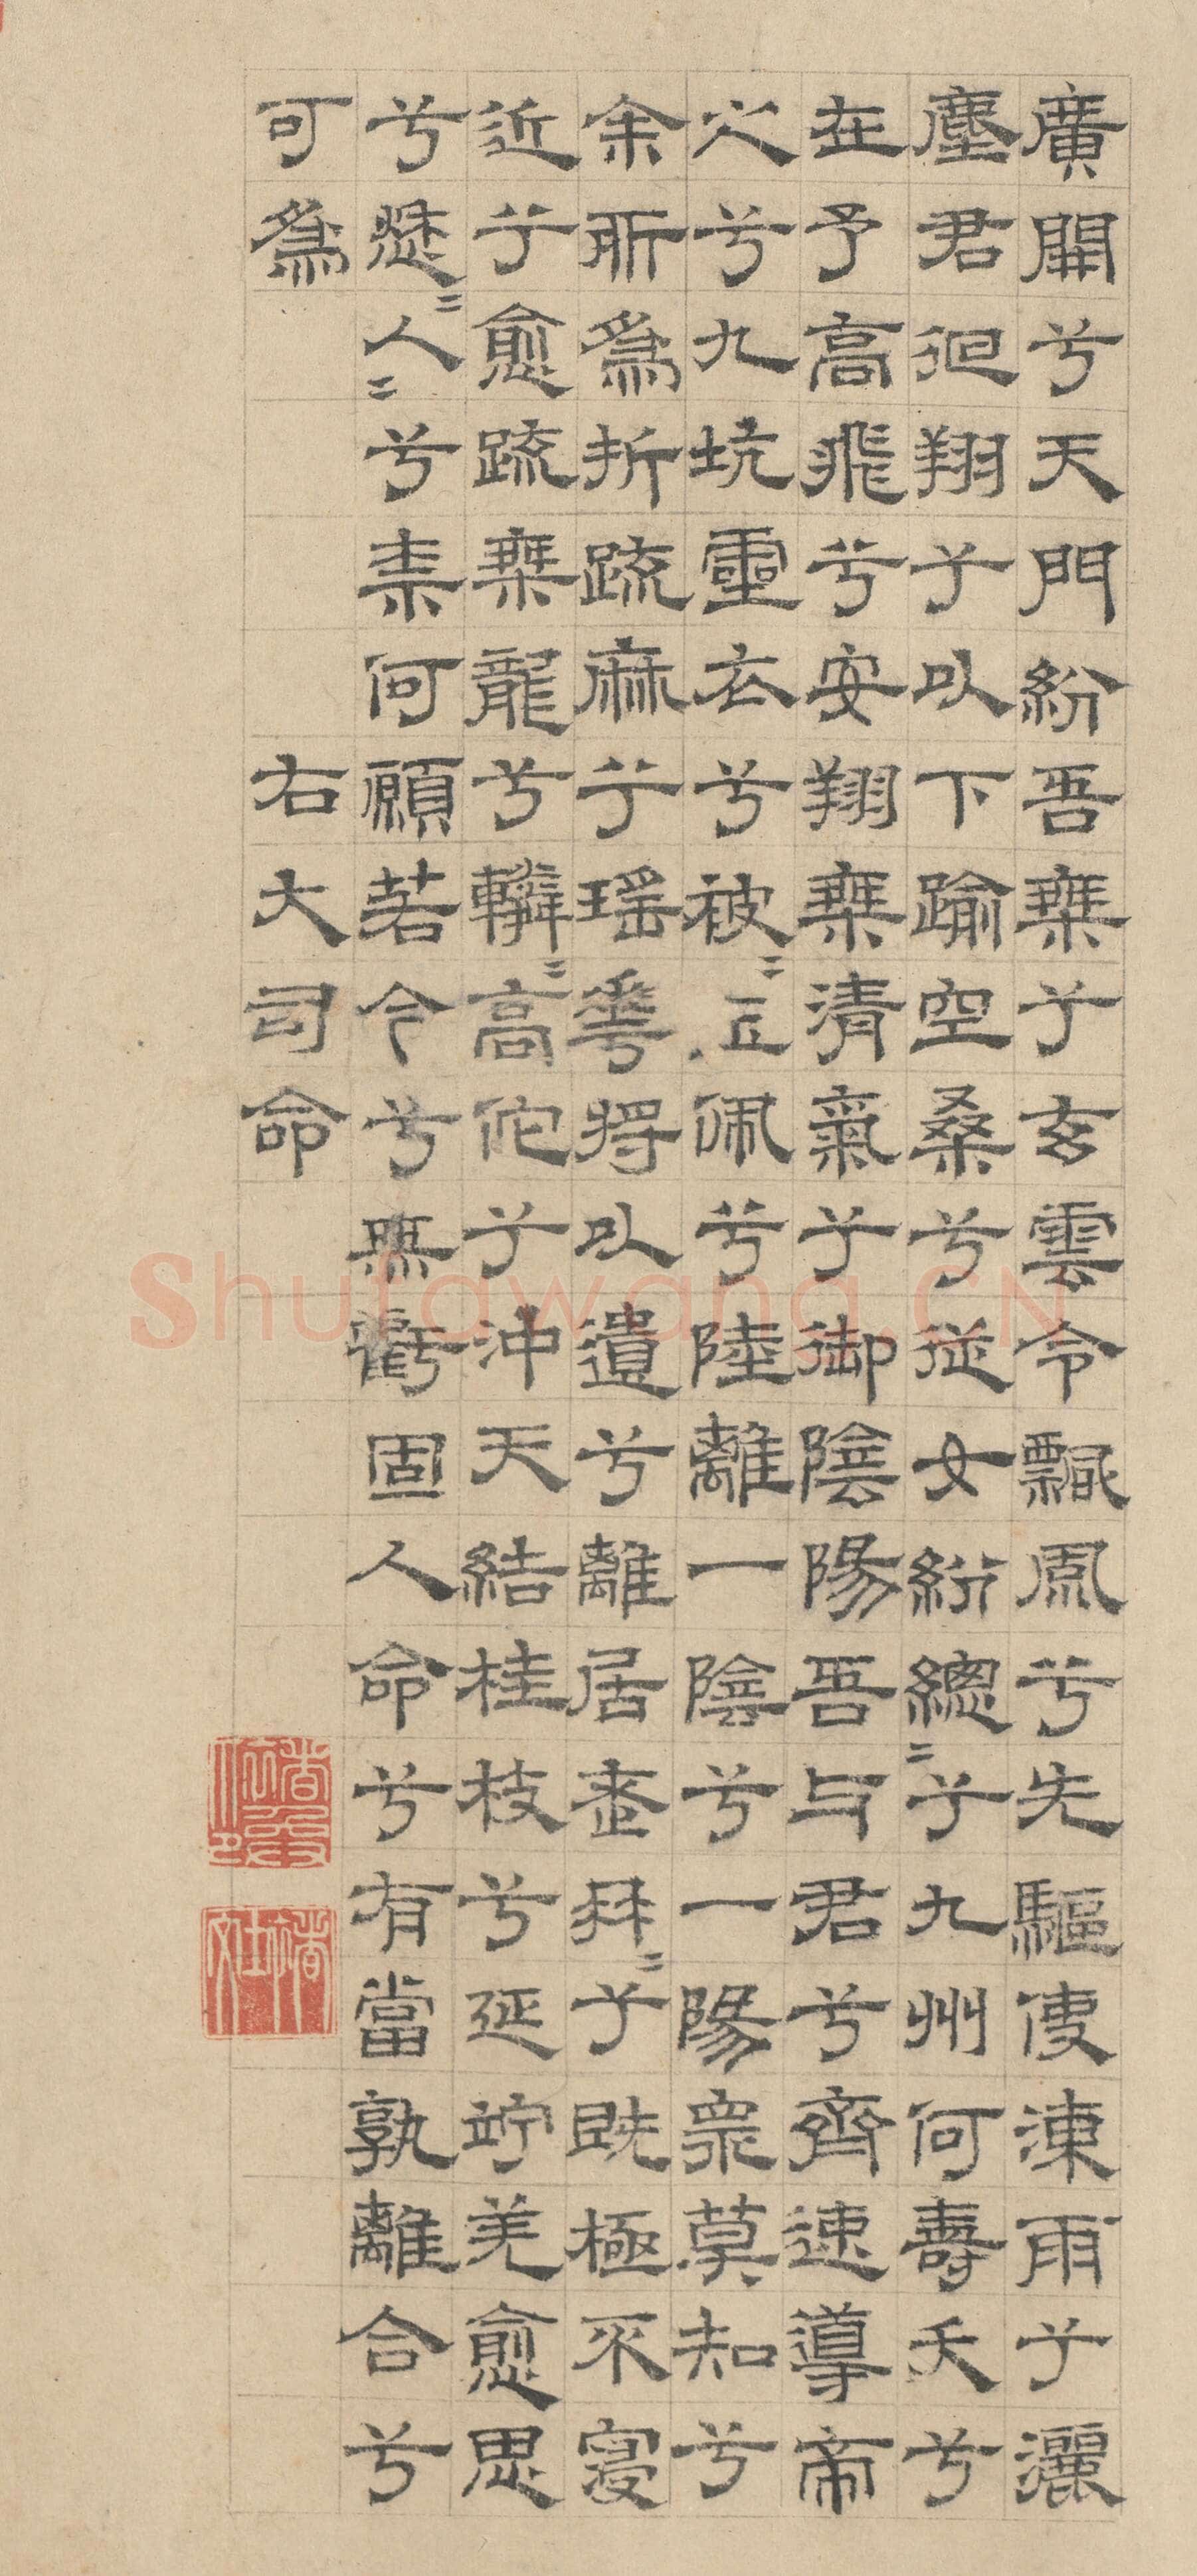 廣開兮天門紛吾乗兮玄雲令飄風兮先驅使涷雨兮灑
塵君徊翔兮以下踰空桑兮從女紛總〻兮九州何壽夭兮
在予高飛兮安翔乗清氣兮御陰陽吾与君兮齊速導帝
之兮九坑靈衣兮被〻玉佩兮陸離一陰兮一陽衆莫知兮
余所爲折疏麻兮瑶華將以遺兮離居老冉〻兮既極不寖
近兮愈疏乗龍兮轔〻高佗兮沖天結桂枝兮延竚羌愈思
兮愁〻人〻兮柰何願若今兮無虧固人命兮有當孰離合兮
可爲
右大司命
shufawang.CN